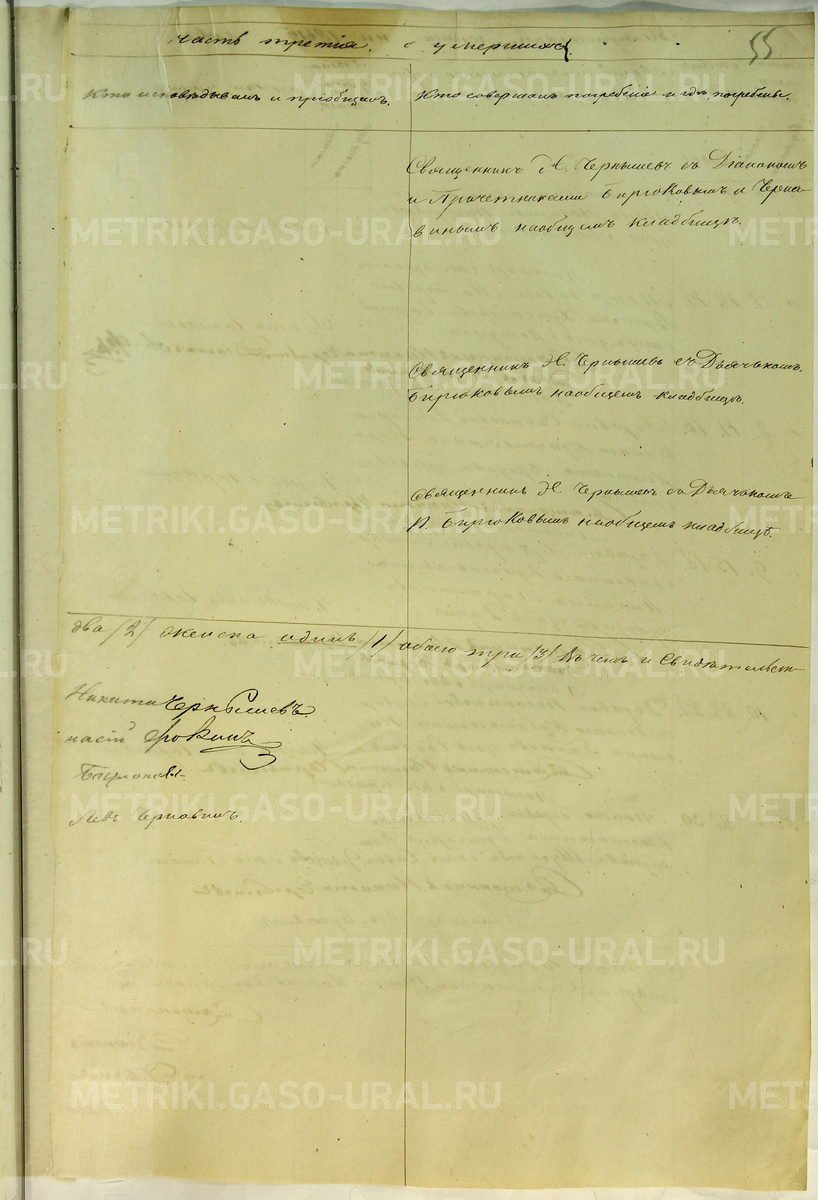 часть третія, о умершихъ.
55
Кто исповѣдывалъ и пріобщалъ.
Кто совершалъ погребеніе и гдѣ погребены.
Священникъ Н. Чернышевъ съ Діакономъ
и Причетниками Бирюковымъ и Черна
винымъ на общемъ кладбищѣ.
Священникъ Н. Чернышевъ съ Дьячькомъ
Бирюковымъ на общемъ кладбищѣ.
Священникъ Н. Чернышевъ съ Дьячькомъ
И. Бирюковымъ на общемъ кладбищѣ.
два /2/ женска одинъ /1/ обоего три /3/ Въ чемъ и Свидѣтельст
Никита Чернышевъ
Бирюковъ
METRIKI.GASO-URAL.RU